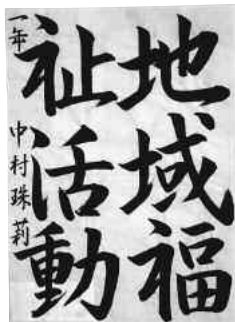 地域福
祉活動
一年 中村珠莉